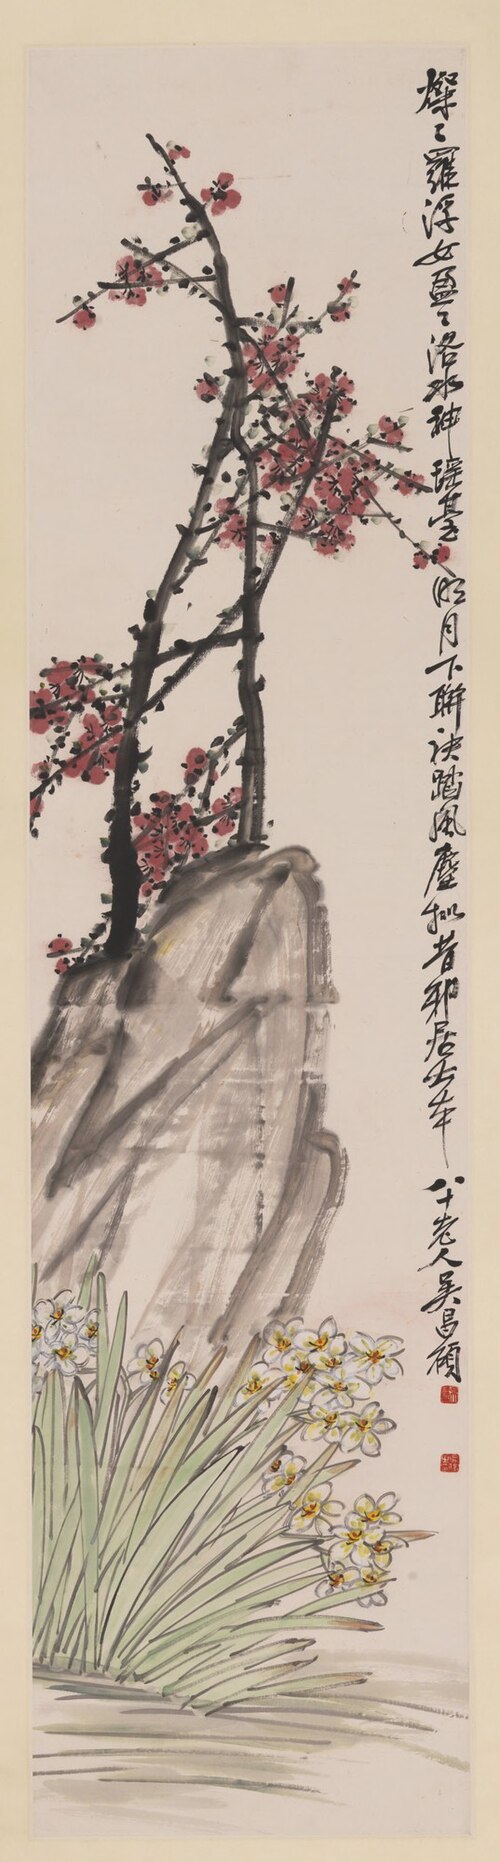 燦〻羅浮女盈〻洛水神瑶臺明月下聯袂踏風塵拟昔邪居士本 八十老人吳昌碩